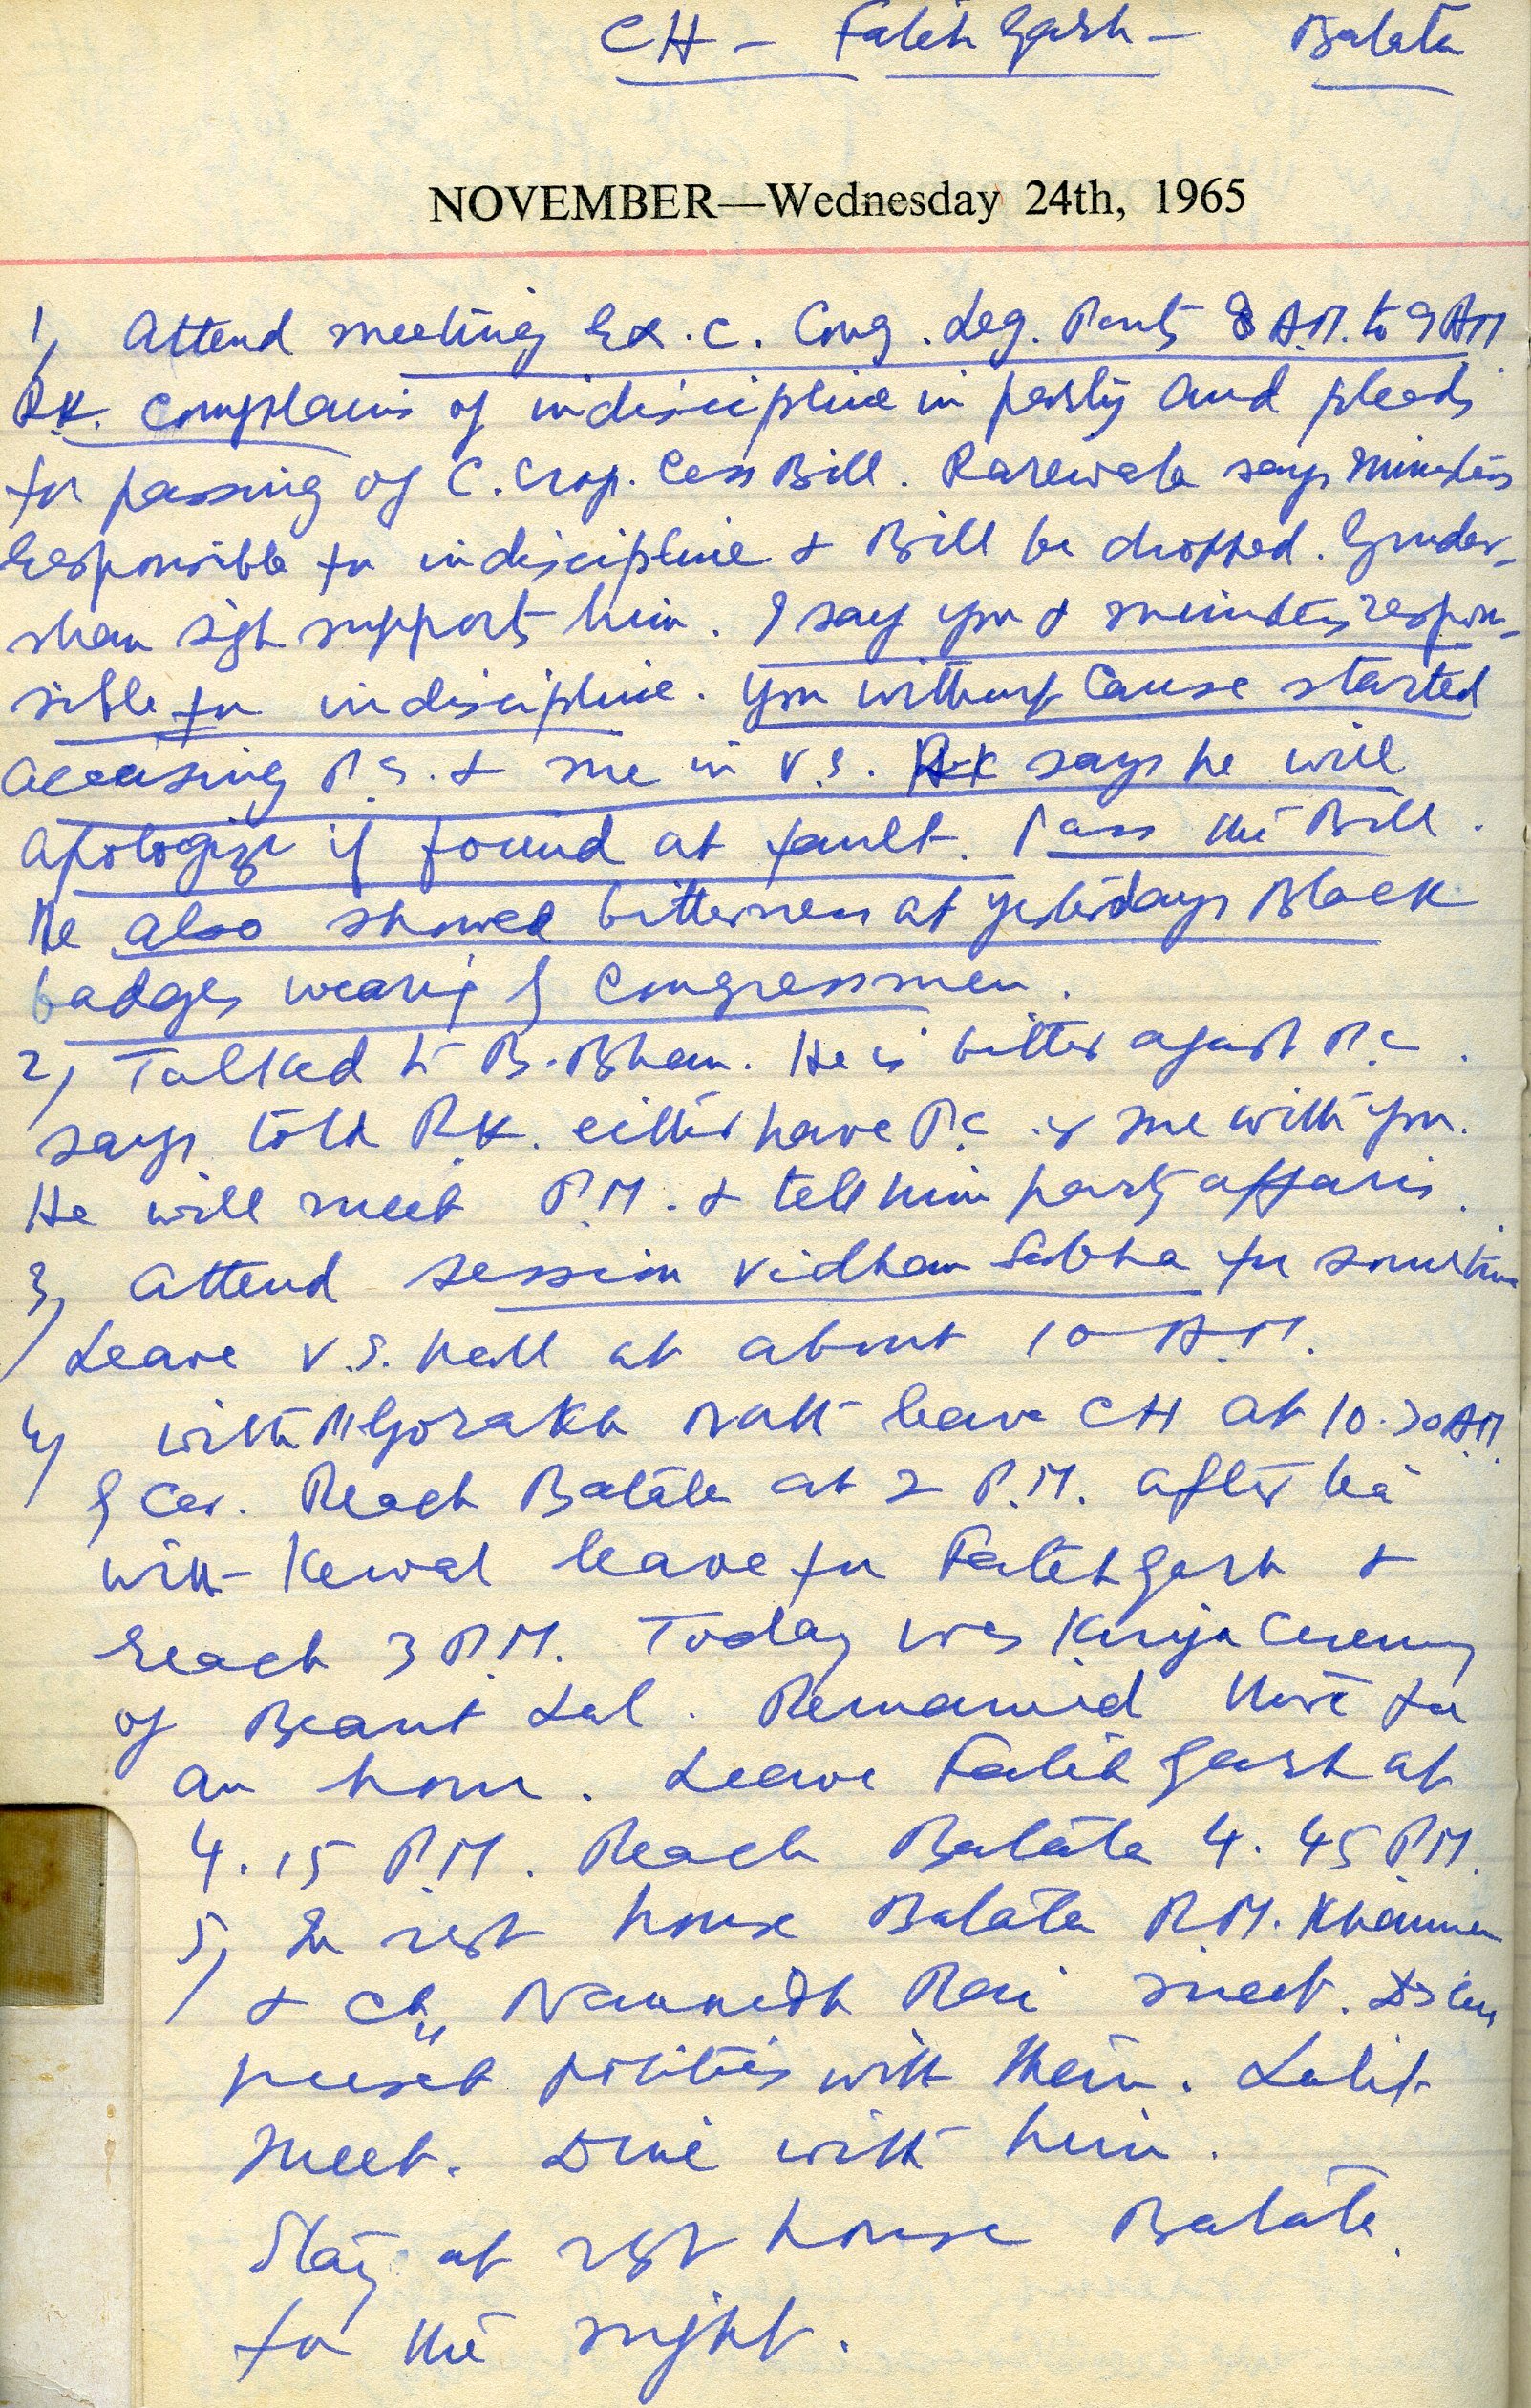 CH - Fateh Garh - Batala
NOVEMBER—Wednesday 24th, 1965
1, Attend meeting Ex. C. Cong. Leg. Party 8 A.M. to 9 AM
R.K. complains of indiscipline in party and pleads
for passing of C. Crop. Cess Bill. Rarewala says Ministers
responsible for indiscipline & Bill be dropped. Gurdar-
shan Sgh supports him. I say you & ministers respon-
sible for indiscipline. You without cause started
accusing P.C. & me in V.S. R.K says he will
apologize if found at fault. Pass the Bill.
He also showed bitterness at yesterdays Black
badges wearing of Congressmen.
2, Talked to B. Bhan. He is bitter against P.C.
says told R.K. either have P.C or me with you.
He will meet P.M. & tell him party affairs.
3, Attend session Vidhan Sabha for sometime
Leave V.S. Hall at about 10 A.M.
4, with Gorakh Nath leave CH at 10.30 AM
by Car. Reach Batala at 2 P.M. after tea
with Kewal leave for Fatehgarh &
reach 3 P.M. Today was Kirya Ceremony
of Beant Lal. Remained there for
an hour. Leave Fateh Garh at
4.15 P.M. Reach Batala 4.45 P.M.
5, In rest house Batala R.M. Khanna
& Ch. Naunidh Rai meet. Discuss
present politics with them. Lalit
meet. Dine with him.
Stay at rest house Batala
for the night.